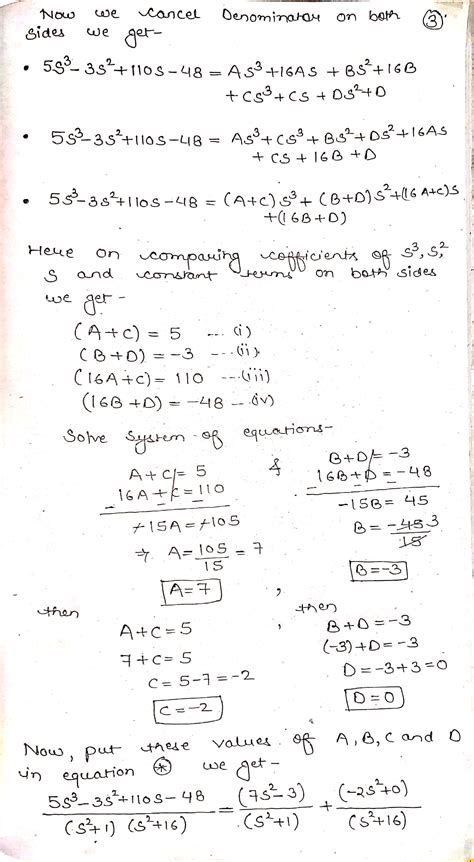 Now we cancel Denominator on both ③.
sides we get-
• 5S³-3S²+110S-48 = AS³+16AS + BS²+16B
+CS³+CS + DS²+D
• 5S³-3S²+110S-48 = AS³+CS³+BS²+DS²+16AS
+CS+16B+D
• 5S³-3S²+110S-48 = (A+C)S³+(B+D)S²+(16A+C)S
+(16B+D)
Here on comparing cofficients of S³,S²,
S and constant terms on both sides
we get-
(A+C) = 5 --- (i)
(B+D) = -3 ---(ii)
(16A+C) = 110 ---(iii)
(16B+D) = -48 --- (iv)
Solve System of equations-
A+C = 5 & B+D = -3
16A+C = 110 16B+D = -48
- - - - - -
+15A = +105 -15B = 45
⇒ A = 105/15 = 7 B = -45 3/15
A=7 , B=-3
then then
A+C=5 , B+D=-3
7+C=5 (-3)+D=-3
C=5-7=-2 D=-3+3=0
C=-2 D=0
Now, put these values of A,B,C and D
in equation ⊛ we get-
5S³-3S²+110S-48/(S²+1)(S²+16) = (7S²-3)/(S²+1) + (-2S²+0)/(S²+16)